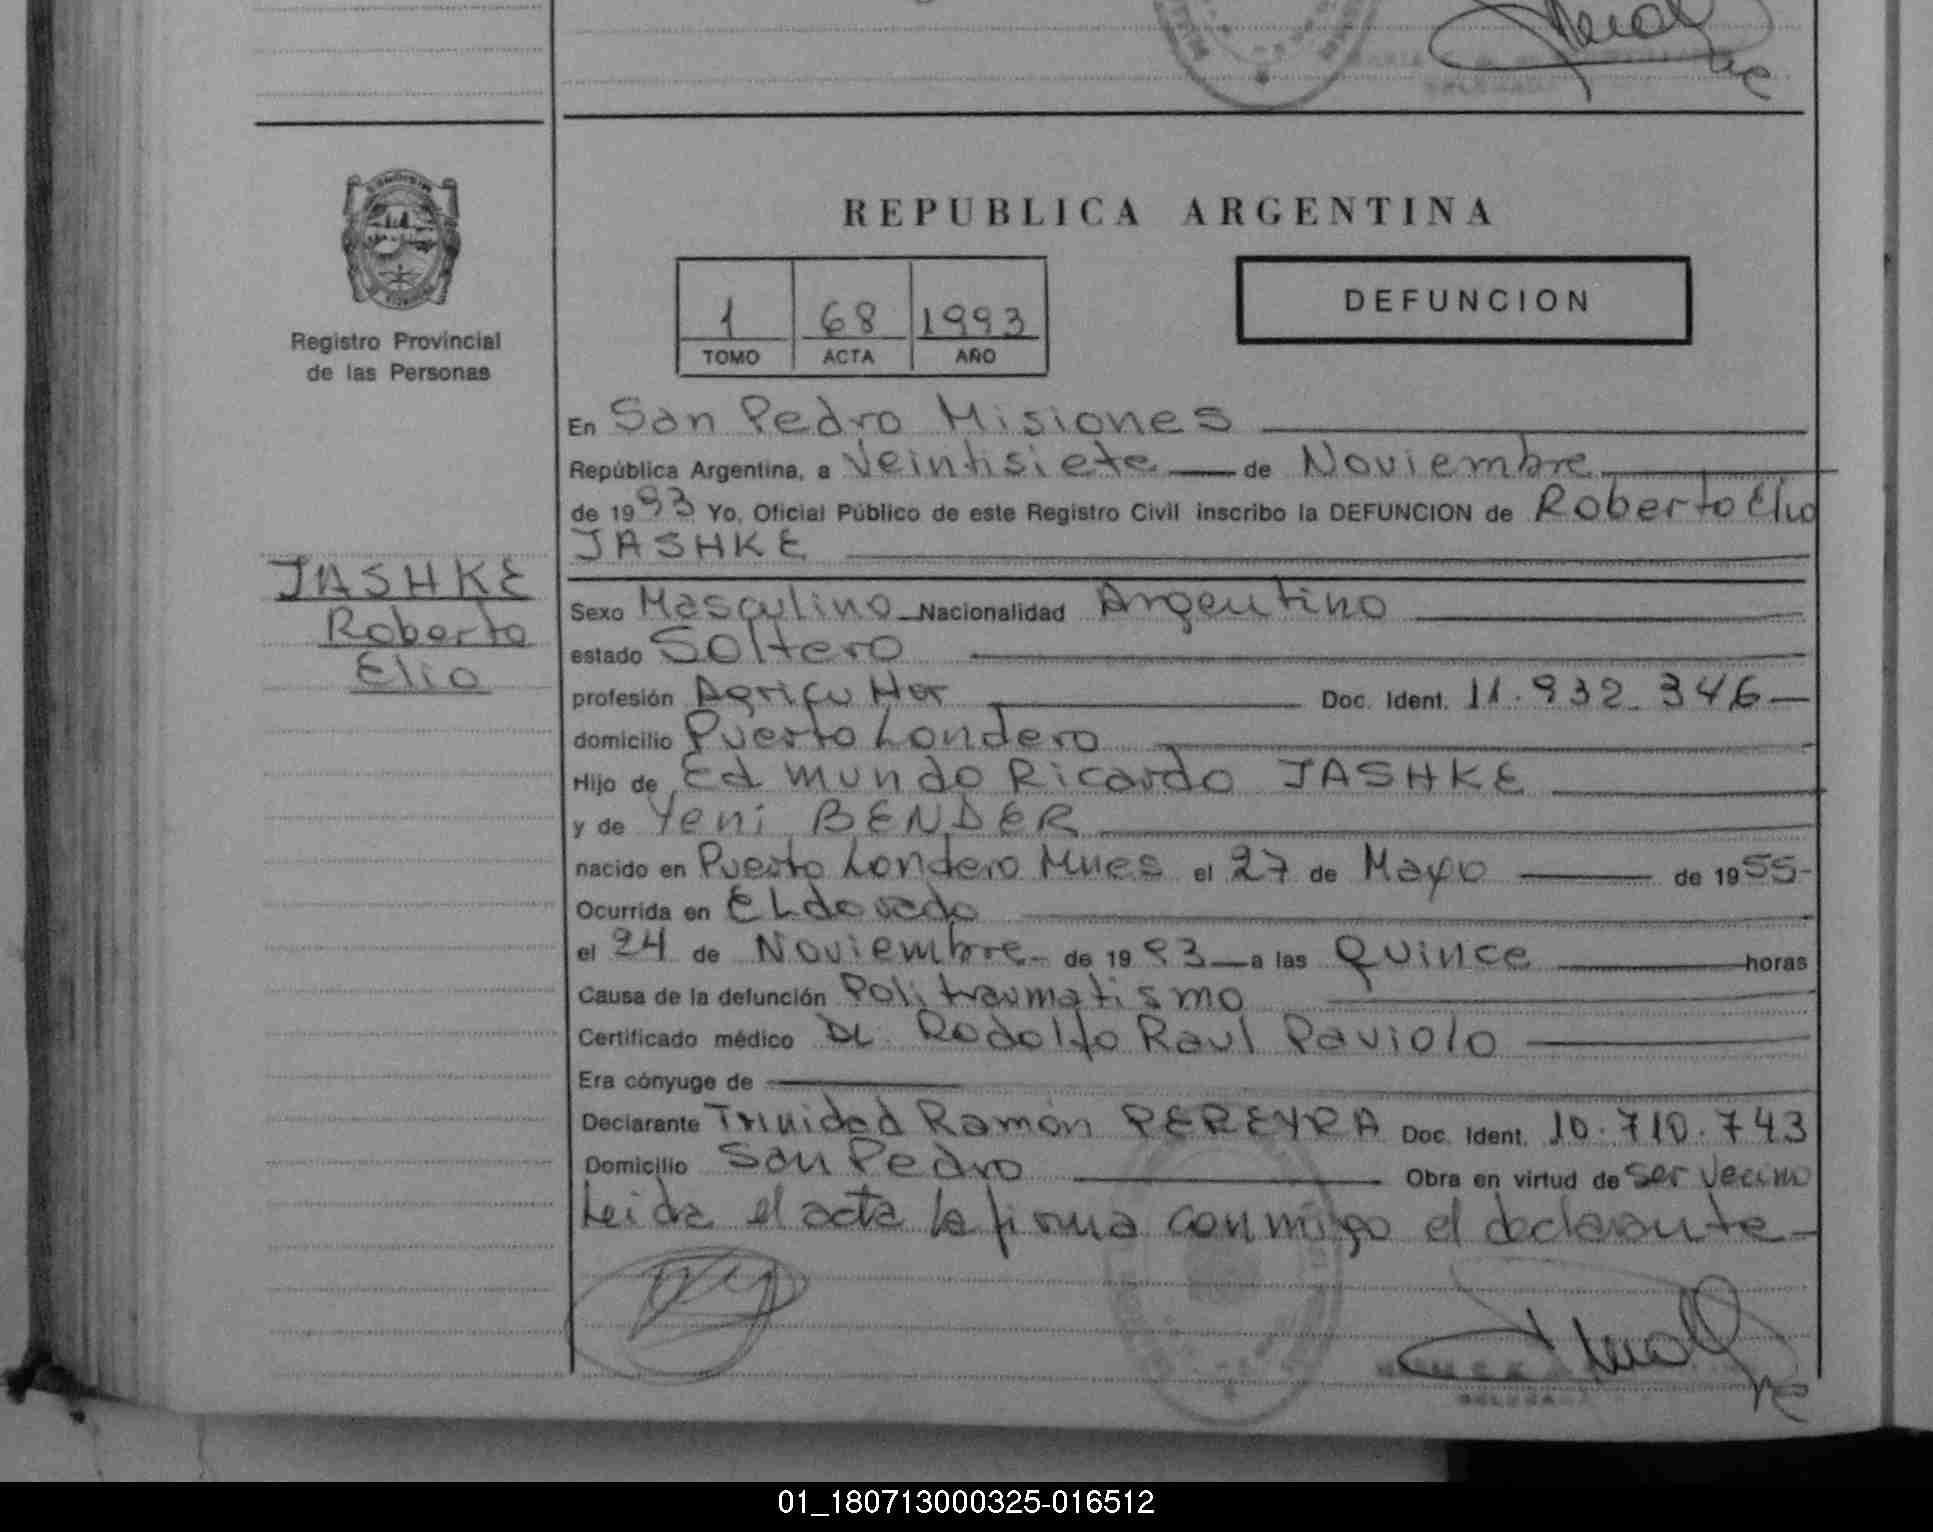 REPUBLICA ARGENTINA
1 68 1993
TOMO ACTA AÑO
DEFUNCION
Registro Provincial
de las Personas
JASHKE
Roberto
Elio
En San Pedro Misiones
República Argentina, a Veintisiete de Noviembre
de 1993 Yo, Oficial Público de este Registro Civil inscribo la DEFUNCION de Roberto Elio
JASHKE
Sexo Masculino Nacionalidad Argentino
estado Soltero
profesión Agricultor Doc. Ident. 11.932.346
domicilio Puerto Londero
Hijo de Edmundo Ricardo JASHKE
y de Yeni BENDER
nacido en Puerto Londero Mnes el 27 de Mayo de 1955
Ocurrida en ELdorado
el 24 de Noviembre de 1993 a las Quince horas
Causa de la defunción Politraumatismo
Certificado médico Dr. Rodolfo Raul Paviolo
Era cónyuge de
Declarante Trinidad Ramón PEREYRA Doc. Ident. 10.710.743
Domicilio San Pedro Obra en virtud de ser vecino
Leida el acta la firma conmigo el declarante
01_180713000325-016512